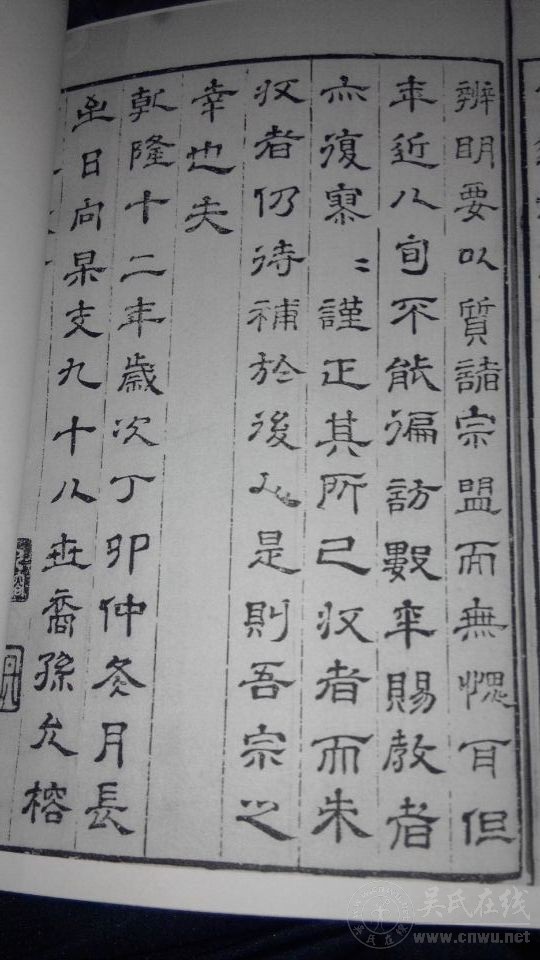 辨明要以質諸宗盟而無愧耳但
年近八旬不能徧訪數年賜教者
亦復寥〻謹正其所已収者而未
収者仍待補於後人是則吾宗之
幸也夫
乾隆十二年歲次丁卯仲冬月長
至日向杲支九十八世裔孫允榕
吴氏在线
www.cnwu.net